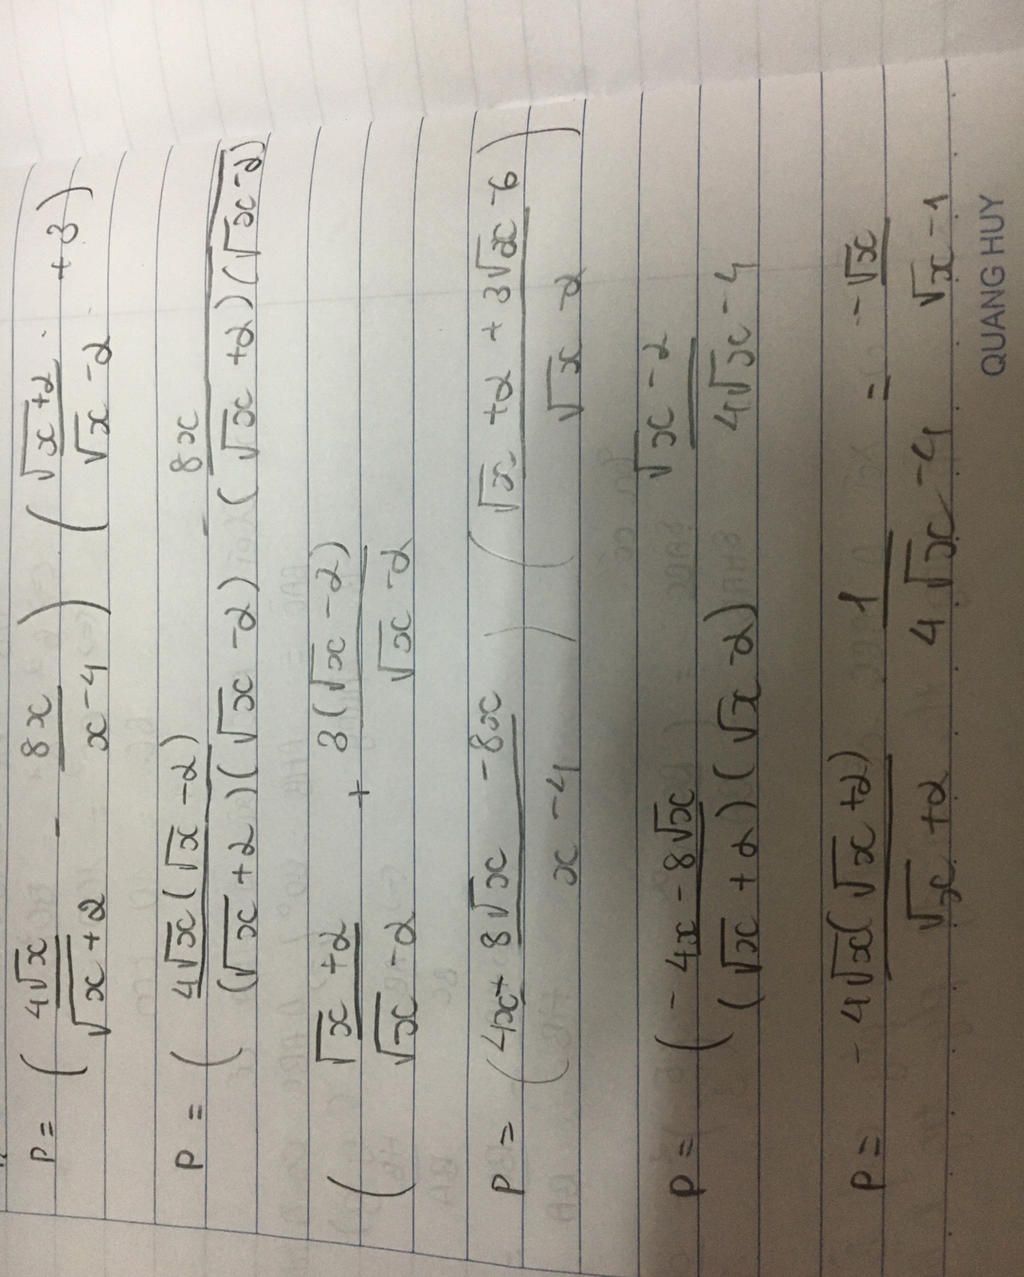 P = ( 4√x / √x+2 - 8x / x-4 ) ( √x+2 / √x-2 + 3 )
P = ( 4√x(√x-2) / (√x+2)(√x-2) - 8x / (√x+2)(√x-2)
( √x+2 / √x-2 + 3(√x-2) / √x-2
P = ( 4x+8√x-8x / x-4 ) ( √x+2+3√x-6 / √x-2 )
P = ( -4x-8√x / (√x+2)(√x-2) √x-2 / 4√x-4
P = -4√x(√x+2) / √x+2 1 / 4√x-4 = -√x / √x-1
QUANG HUY